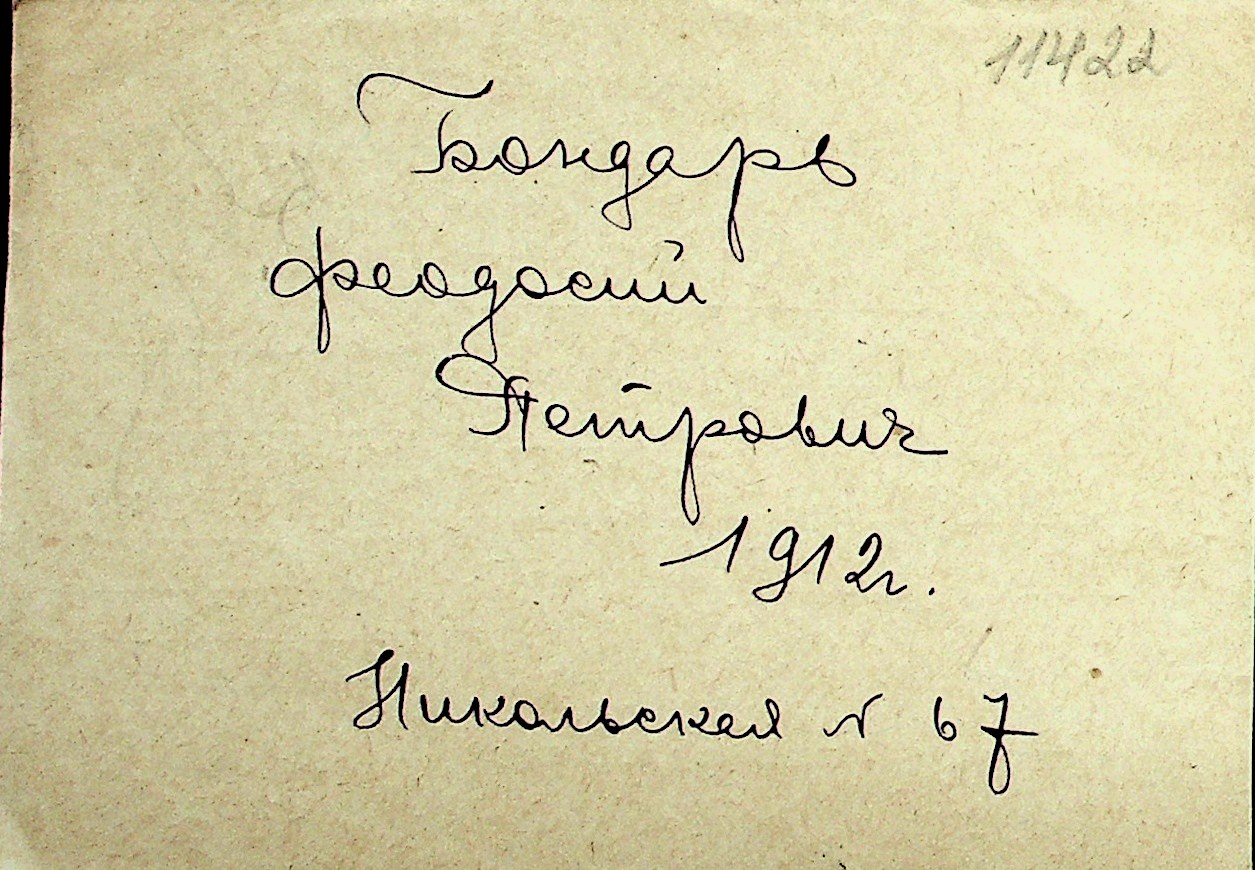 11422
Бондарь
Феодосий
Петрович
1912г.
Никольская № 67